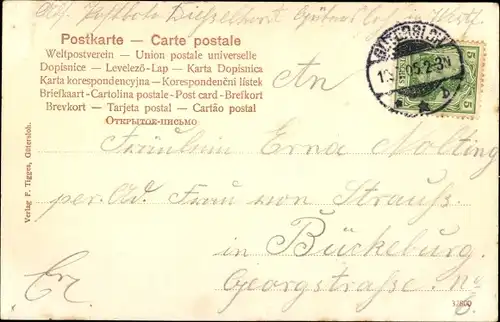 Abs. Postbote Diesselhorst Gütersloh in Westf
Postkarte – Carte postale
Weltpostverein – Union postale universelle
Dopisnice – Levelező-Lap – Karta Dopisnica
Karta korespondencyjna – Korespondenční lístek
Briefkaart – Cartolina postale – Post card – Brefkort
Brevkort – Tarjeta postal – Cartão postal
Открытое-письмо
5
5
05.2-3N
b
An
Fräulein Erna Nolting
per. Ad. Frau von Strauß
in Bückeburg
Georgstraße. No
6.
Verlag F. Tigges, Gütersloh.
37800